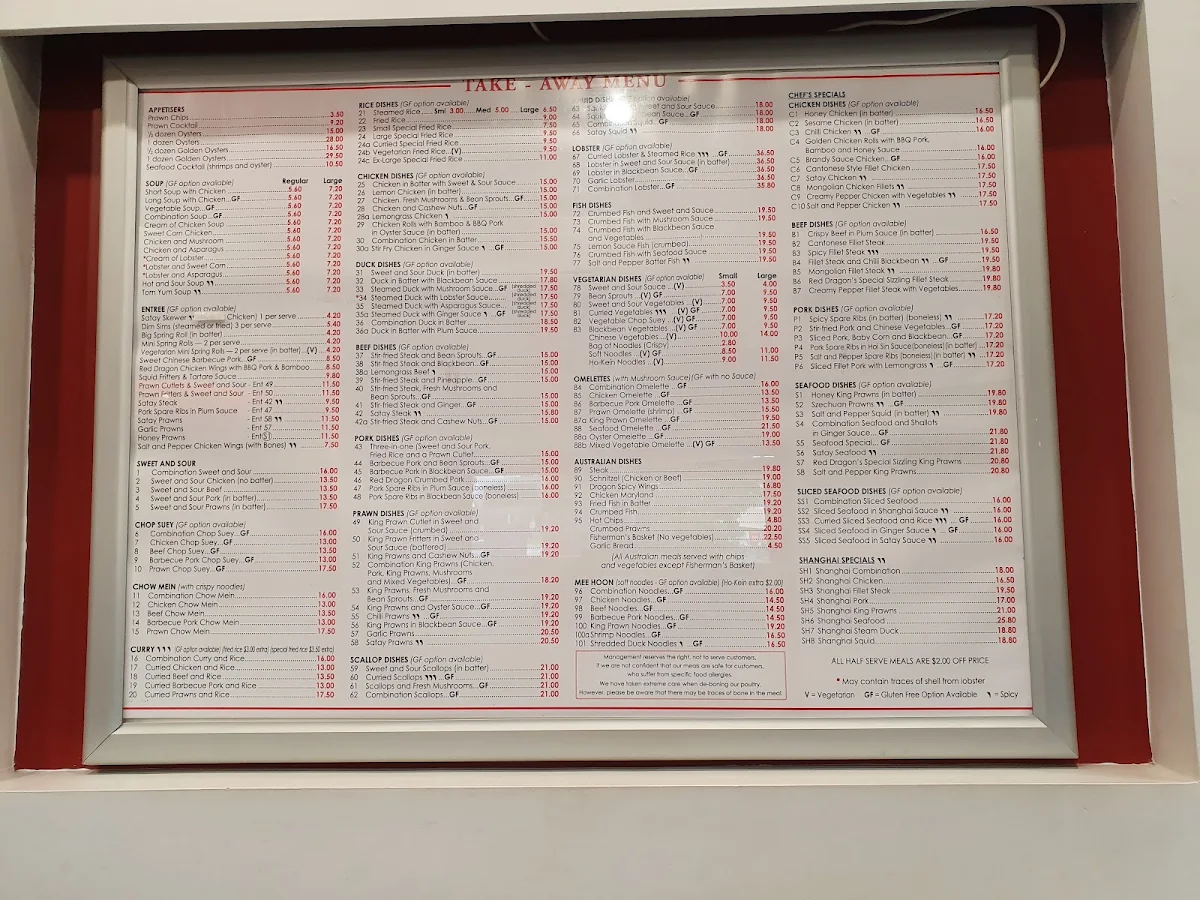 TAKE - AWAY MENU
APPETISERS
Prawn Chips 3.50
Prawn Cocktail 9.20
½ dozen Oysters 15.00
1 dozen Oysters 28.00
½ dozen Golden Oysters 16.50
1 dozen Golden Oysters 29.50
Seafood Cocktail (shrimps and oyster) 10.50
SOUP (GF option available) Regular Large
Short Soup with Chicken 5.60 7.20
Long Soup with Chicken...GF 5.60 7.20
Vegetable Soup...GF 5.60 7.20
Combination Soup...GF 5.60 7.20
Cream of Chicken Soup 5.60 7.20
Sweet Corn Chicken 5.60 7.20
Chicken and Mushroom 5.60 7.20
Chicken and Asparagus 5.60 7.20
*Cream of Lobster 5.60 7.20
*Lobster and Sweet Corn 5.60 7.20
*Lobster and Asparagus 5.60 7.20
Hot and Sour Soup 5.60 7.20
Tom Yum Soup 5.60 7.20
ENTREE (GF option available)
Satay Skewer Chicken) 1 per serve 4.20
Dim Sims (steamed or fried) 3 per serve 5.40
Big Spring Roll (in batter) 4.20
Mini Spring Rolls — 2 per serve 4.20
Vegetarian Mini Spring Rolls — 2 per serve (in batter)...(V) 4.20
Sweet Chinese Barbecue Pork...GF 8.50
Red Dragon Chicken Wings with BBQ Pork & Bamboo 8.50
Squid Fritters & Tartare Sauce 9.80
Prawn Cutlets & Sweet and Sour - Ent 49 11.50
Prawn Fritters & Sweet and Sour - Ent 50 11.50
Satay Steak - Ent 42 9.50
Pork Spare Ribs in Plum Sauce - Ent 47 9.50
Satay Prawns - Ent 58 11.50
Garlic Prawns - Ent 57 11.50
Honey Prawns - Ent S1 11.50
Salt and Pepper Chicken Wings (with Bones) 7.50
SWEET AND SOUR
1 Combination Sweet and Sour 16.00
2 Sweet and Sour Chicken (no batter) 13.50
3 Sweet and Sour Beef 13.50
4 Sweet and Sour Pork (in batter) 13.50
5 Sweet and Sour Prawns (in batter) 17.50
CHOP SUEY (GF option available)
6 Combination Chop Suey...GF 16.00
7 Chicken Chop Suey...GF 13.00
8 Beef Chop Suey...GF 13.50
9 Barbecue Pork Chop Suey...GF 13.00
10 Prawn Chop Suey...GF 17.50
CHOW MEIN (with crispy noodles)
11 Combination Chow Mein 16.00
12 Chicken Chow Mein 13.00
13 Beef Chow Mein 13.50
14 Barbecue Pork Chow Mein 13.00
15 Prawn Chow Mein 17.50
CURRY (GF option available) (fried rice $3.00 extra) (special fried rice $3.50 extra)
16 Combination Curry and Rice 16.00
17 Curried Chicken and Rice 13.00
18 Curried Beef and Rice 13.50
19 Curried Barbecue Pork and Rice 13.00
20 Curried Prawns and Rice 17.50
RICE DISHES (GF option available)
21 Steamed Rice Sml 3.00 Med 5.00 Large 6.50
22 Fried Rice 9.00
23 Small Special Fried Rice 7.50
24 Large Special Fried Rice 9.50
24a Curried Special Fried Rice 9.50
24b Vegetarian Fried Rice...(V) 9.50
24c Ex-Large Special Fried Rice 11.00
CHICKEN DISHES (GF option available)
25 Chicken in Batter with Sweet & Sour Sauce 15.00
26 Lemon Chicken (in batter) 15.00
27 Chicken, Fresh Mushrooms & Bean Sprouts...GF 15.00
28 Chicken and Cashew Nuts...GF 15.00
28a Lemongrass Chicken 15.00
29 Chicken Rolls with Bamboo & BBQ Pork
in Oyster Sauce (in batter) 15.00
30 Combination Chicken in Batter 15.50
30a Stir Fry Chicken in Ginger Sauce ...GF 15.00
DUCK DISHES (GF option available)
31 Sweet and Sour Duck (in batter) 19.50
32 Duck in Batter with Blackbean 17.80
33 Steamed Duck with Mushroom Sauce...GF (shredded duck) 17.50
*34 Steamed Duck with Lobster Sauce (shredded duck) 17.50
35 Steamed Duck with Asparagus Sauce (shredded duck) 17.50
35a Steamed Duck with Ginger Sauce ...GF (shredded duck) 17.50
36 Combination Duck in Batter 18.50
36a Duck in Batter with Plum Sauce 19.50
BEEF DISHES (GF option available)
37 Stir-fried Steak and Bean Sprouts...GF 15.00
38 Stir-fried Steak and Blackbean...GF 15.00
38a Lemongrass Beef 15.00
39 Stir-fried Steak and Pineapple...GF 15.00
40 Stir-fried Steak, Fresh Mushrooms and
Bean Sprouts...GF 15.00
41 Stir-fried Steak and Ginger...GF 15.00
42 Satay Steak 15.80
42a Stir-fried Steak and Cashew Nuts...GF 15.00
PORK DISHES (GF option available)
43 Three-in-one (Sweet and Sour Pork,
Fried Rice and a Prawn Cutlet) 15.00
44 Barbecue Pork and Bean Sprouts...GF 15.00
45 Barbecue Pork in Blackbean Sauce...GF 15.00
46 Red Dragon Crumbed Pork 16.00
47 Pork Spare Ribs in Plum Sauce (boneless) 16.00
48 Pork Spare Ribs in Blackbean Sauce (boneless) 16.00
PRAWN DISHES (GF option available)
49 King Prawn Cutlet in Sweet and
Sour Sauce (crumbed) 19.20
50 King Prawn Fritters in Sweet and
Sour Sauce (battered) 19.20
51 King Prawns and Cashew Nuts...GF 19.20
52 Combination King Prawns (Chicken,
Pork, King Prawns, Mushrooms
and Mixed Vegetables)...GF 18.20
53 King Prawns, Fresh Mushrooms and
Bean Sprouts...GF 19.20
54 King Prawns and Oyster Sauce...GF 19.20
55 Chilli Prawns ...GF 19.20
56 King Prawns in Blackbean Sauce...GF 19.20
57 Garlic Prawns 20.50
58 Satay Prawns 20.50
SCALLOP DISHES (GF option available)
59 Sweet and Sour Scallops (in batter) 21.00
60 Curried Scallops ...GF 21.00
61 Scallops and Fresh Mushrooms...GF 21.00
62 Combination Scallops...GF 21.00
option available)
63 and Sour Sauce 18.00
64 Sauce...GF 18.00
65 GF 18.00
66 Satay Squid 18.00
LOBSTER (GF option available)
67 Curried Lobster & Steamed Rice ...GF 36.50
68 Lobster in Sweet and Sour Sauce (in batter) 36.50
69 Lobster in Blackbean Sauce...GF 36.50
70 Garlic Lobster 36.50
71 Combination Lobster...GF 35.80
FISH DISHES
72 Crumbed Fish and Sweet and Sauce 19.50
73 Crumbed Fish with Mushroom Sauce 19.50
74 Crumbed Fish with Blackbean Sauce
and Vegetables 19.50
75 Lemon Sauce Fish (crumbed) 19.50
76 Crumbed Fish with Seafood Sauce 19.50
77 Salt and Pepper Batter Fish 19.50
VEGETARIAN DISHES (GF option available) Small Large
78 Sweet and Sour Sauce...(V) 3.50 4.00
79 Bean Sprouts...(V) GF 7.00 9.50
80 Sweet and Sour Vegetables...(V) 7.00 9.50
81 Curried Vegetables ...(V) GF 7.00 9.50
82 Vegetable Chop Suey...(V) GF 7.00 9.50
83 Blackbean Vegetables...(V) GF 7.00 9.50
Chinese Vegetables...(V) 10.00 14.00
Bag of Noodles (Crispy) 2.80
Soft Noodles...(V) GF 8.50 11.00
Ho-Kein Noodles...(V) 9.00 11.50
OMELETTES (with Mushroom Sauce)/(GF with no Sauce)
84 Combination Omelette...GF 16.00
85 Chicken Omelette...GF 13.50
86 Barbecue Pork Omelette...GF 13.50
87 Prawn Omelette (shrimp)...GF 15.50
87a King Prawn Omelette...GF 19.50
88 Seafood Omelette...GF 21.50
88a Oyster Omelette...GF 19.00
88b Mixed Vegetable Omelette...(V) GF 13.50
AUSTRALIAN DISHES
89 Steak 19.80
90 Schnitzel (Chicken or Beef) 19.00
91 Dragon Spicy Wings 16.80
92 Chicken Maryland 17.50
93 Fried Fish in Batter 19.20
94 Crumbed Fish 19.20
95 Hot Chips 4.80
Crumbed Prawns 20.20
Fisherman's Basket (No vegetables) 22.50
Garlic Bread 4.50
(All Australian meals served with chips
and vegetables except Fisherman's Basket)
MEE HOON (soft noodles - GF option available) (Ho-Kein extra $2.00)
96 Combination Noodles...GF 16.00
97 Chicken Noodles...GF 14.50
98 Beef Noodles...GF 14.50
99 Barbecue Pork Noodles...GF 14.50
100 King Prawn Noodles...GF 19.20
100a Shrimp Noodles...GF 16.50
101 Shredded Duck Noodles ...GF 16.50
Management reserves the right, not to serve customers,
if we are not confident that our meals are safe for customers,
who suffer from specific food allergies.
We have taken extreme care when de-boning our poultry.
However, please be aware that there may be traces of bone in the meal.
CHEF'S SPECIALS
CHICKEN DISHES (GF option available)
C1 Honey Chicken (in batter) 16.50
C2 Sesame Chicken (in batter) 16.50
C3 Chilli Chicken ...GF 16.00
C4 Golden Chicken Rolls with BBQ Pork,
Bamboo and Honey Sauce 16.00
C5 Brandy Sauce Chicken...GF 16.00
C6 Cantonese Style Fillet Chicken 17.50
C7 Satay Chicken 17.50
C8 Mongolian Chicken Fillets 17.50
C9 Creamy Pepper Chicken with Vegetables 17.50
C10 Salt and Pepper Chicken 17.50
BEEF DISHES (GF option available)
B1 Crispy Beef in Plum Sauce (in batter) 16.50
B2 Cantonese Fillet Steak 19.50
B3 Spicy Fillet Steak 19.50
B4 Fillet Steak and Chilli Blackbean ...GF 19.50
B5 Mongolian Fillet Steak 19.80
B6 Red Dragon's Special Sizzling Fillet Steak 19.80
B7 Creamy Pepper Fillet Steak with Vegetables 19.80
PORK DISHES (GF option available)
P1 Spicy Spare Ribs (in batter) (boneless) 17.20
P2 Stir-fried Pork and Chinese Vegetables...GF 17.20
P3 Sliced Pork, Baby Corn and Blackbean...GF 17.20
P4 Pork Spare Ribs in Hoi Sin Sauce(boneless)(in batter) 17.20
P5 Salt and Pepper Spare Ribs (boneless)(in batter) 17.20
P6 Sliced Fillet Pork with Lemongrass ...GF 17.20
SEAFOOD DISHES (GF option available)
S1 Honey King Prawns (in batter) 19.80
S2 Szechuan Prawns ...GF 19.80
S3 Salt and Pepper Squid (in batter) 19.80
S4 Combination Seafood and Shallots
in Ginger Sauce...GF 21.80
S5 Seafood Special...GF 21.80
S6 Satay Seafood 21.80
S7 Red Dragon's Special Sizzling King Prawns 20.80
S8 Salt and Pepper King Prawns 20.80
SLICED SEAFOOD DISHES (GF option available)
SS1 Combination Sliced Seafood 16.00
SS2 Sliced Seafood in Shanghai Sauce 16.00
SS3 Curried Sliced Seafood and Rice ...GF 16.00
SS4 Sliced Seafood in Ginger Sauce ...GF 16.00
SS5 Sliced Seafood in Satay Sauce 16.00
SHANGHAI SPECIALS
SH1 Shanghai Combination 18.00
SH2 Shanghai Chicken 16.50
SH3 Shanghai Fillet Steak 19.50
SH4 Shanghai Pork 17.00
SH5 Shanghai King Prawns 21.00
SH6 Shanghai Seafood 25.80
SH7 Shanghai Steam Duck 18.80
SH8 Shanghai Squid 18.80
ALL HALF SERVE MEALS ARE $2.00 OFF PRICE
* May contain traces of shell from lobster
V = Vegetarian GF = Gluten Free Option Available = Spicy